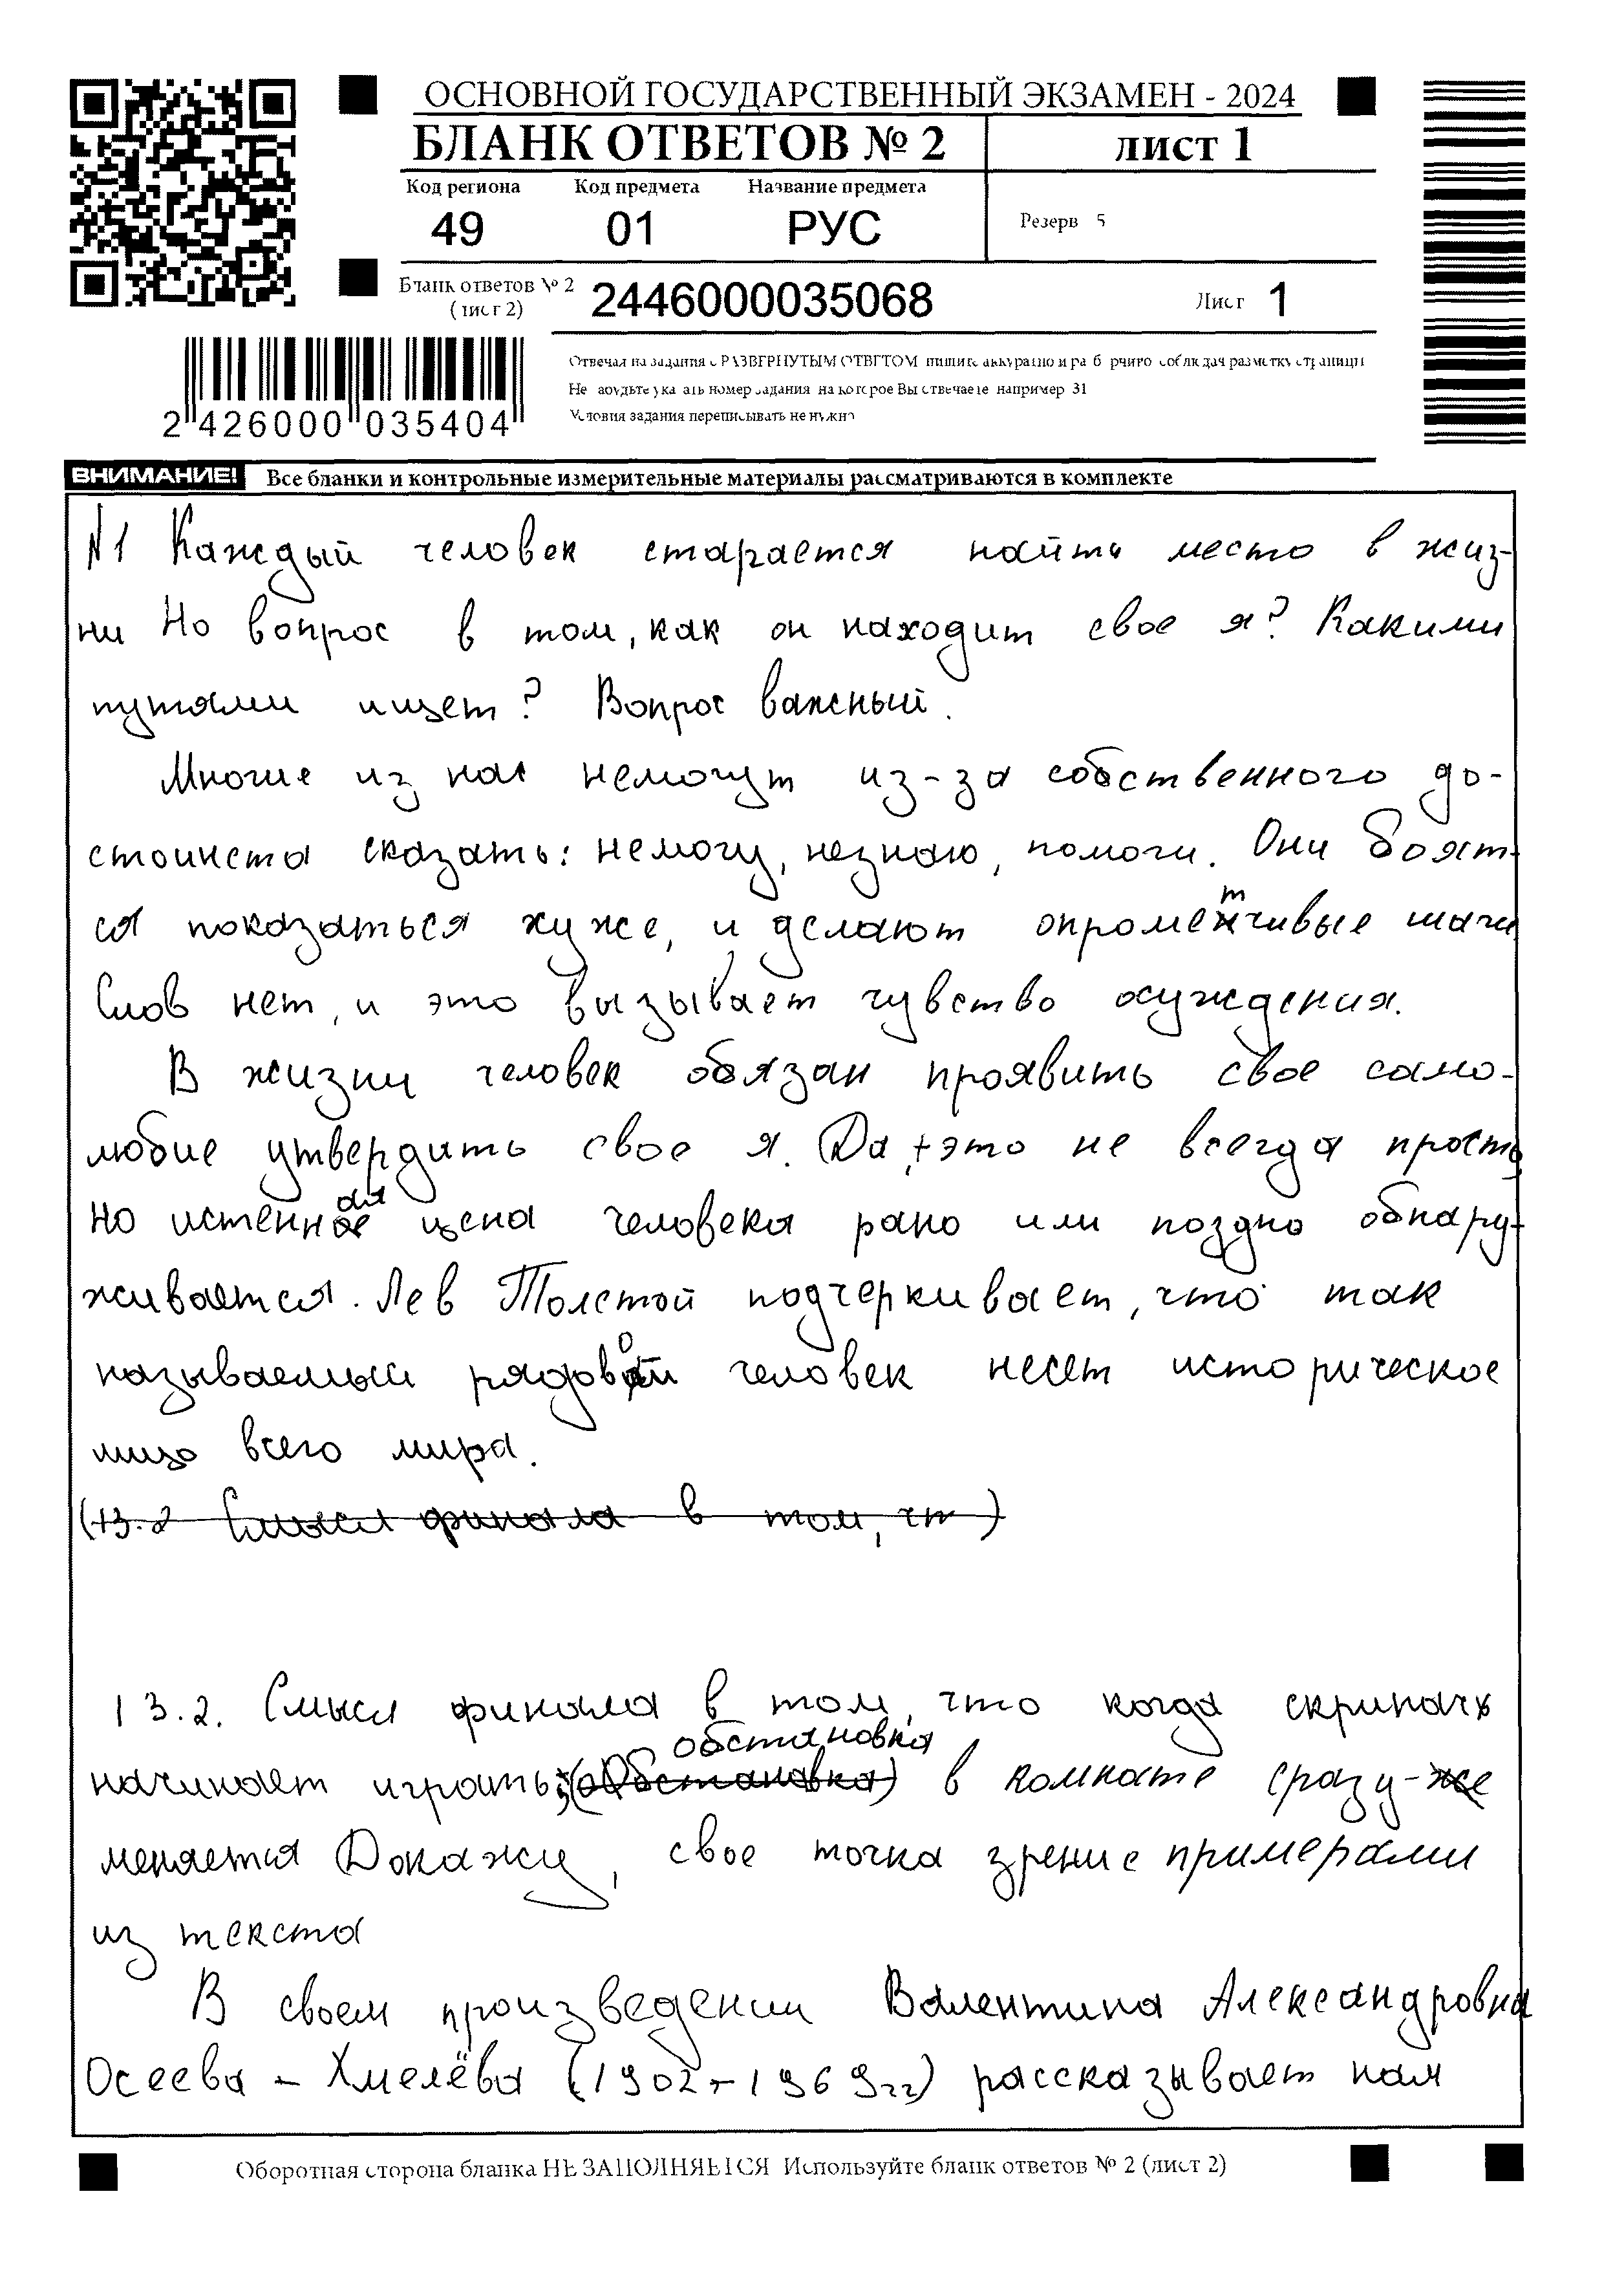 ОСНОВНОЙ ГОСУДАРСТВЕННЫЙ ЭКЗАМЕН - 2024
БЛАНК ОТВЕТОВ № 2 лист 1
Код региона Код предмета Название предмета
49 01 РУС Резерв 5
Бланк ответов № 2 (лист 2) 2446000035068 Лист 1
Отвечая на задания с РАЗВЕРНУТЫМ ОТВЕТОМ пишите аккуратно и разборчиво соблюдая разметку страницы
Не забудьте указать номер задания на которое Вы отвечаете например 31
Условия задания переписывать не нужно
2 426000 035404
ВНИМАНИЕ! Все бланки и контрольные измерительные материалы рассматриваются в комплекте
№1 Каждый человек старается найти место в жиз-
ни Но вопрос в том, как он находит свое я? Какими
путями ищет? Вопрос важный.
Многие из нас немогут из-за собственного до-
стоинста сказать: немогу, незнаю, помоги. Они боят-
ся показаться хуже, и делают опрометчивые шаги
Слов нет, и это вызывает чувство осуждения.
В жизни человек обязан проявить свое само-
любие утвердить свое я. Да, это не всегда просто
но истенная цена человека рано или поздно обнару-
живается. Лев Толстой подчеркивает, что так
называемый рядовой человек несет историческое
лицо всего мира.
(13.2 Смысл финала в том, чт)
13.2. Смысл финала в том, что когда скрипачь
начинает играть; (обстановка) обстановка в комнате сразу-же
меняется Докажу, свое точка зрение примерами
из текста
В своем произведении Валентина Александровна
Осеева - Хмелёва (1902-1969гг) рассказывает нам
Оборотная сторона бланка НЕ ЗАПОЛНЯЕТСЯ Используйте бланк ответов № 2 (лист 2)